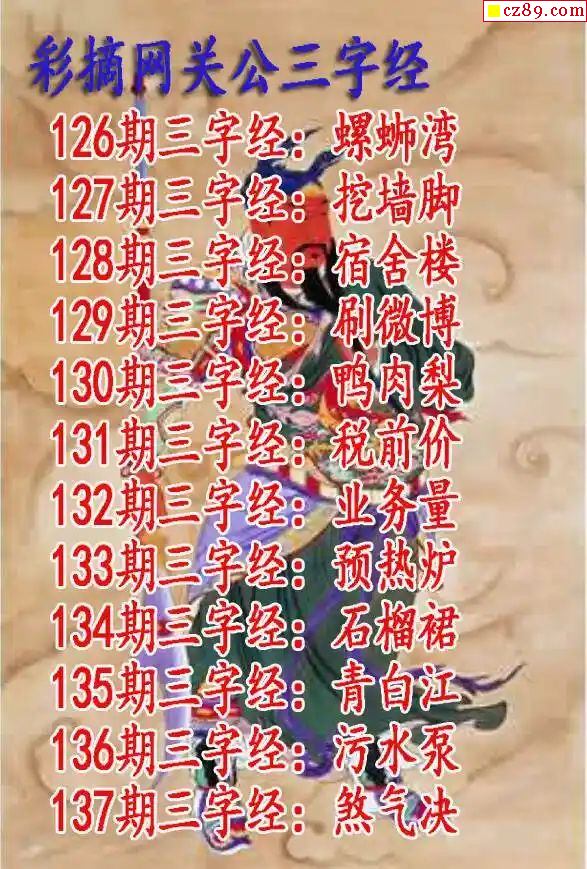 cz89.com
彩摘网关公三字经
126期三字经：螺蛳湾
127期三字经：挖墙脚
128期三字经：宿舍楼
129期三字经：刷微博
130期三字经：鸭肉梨
131期三字经：税前价
132期三字经：业务量
133期三字经：预热炉
134期三字经：石榴裙
135期三字经：青白江
136期三字经：污水泵
137期三字经：煞气决